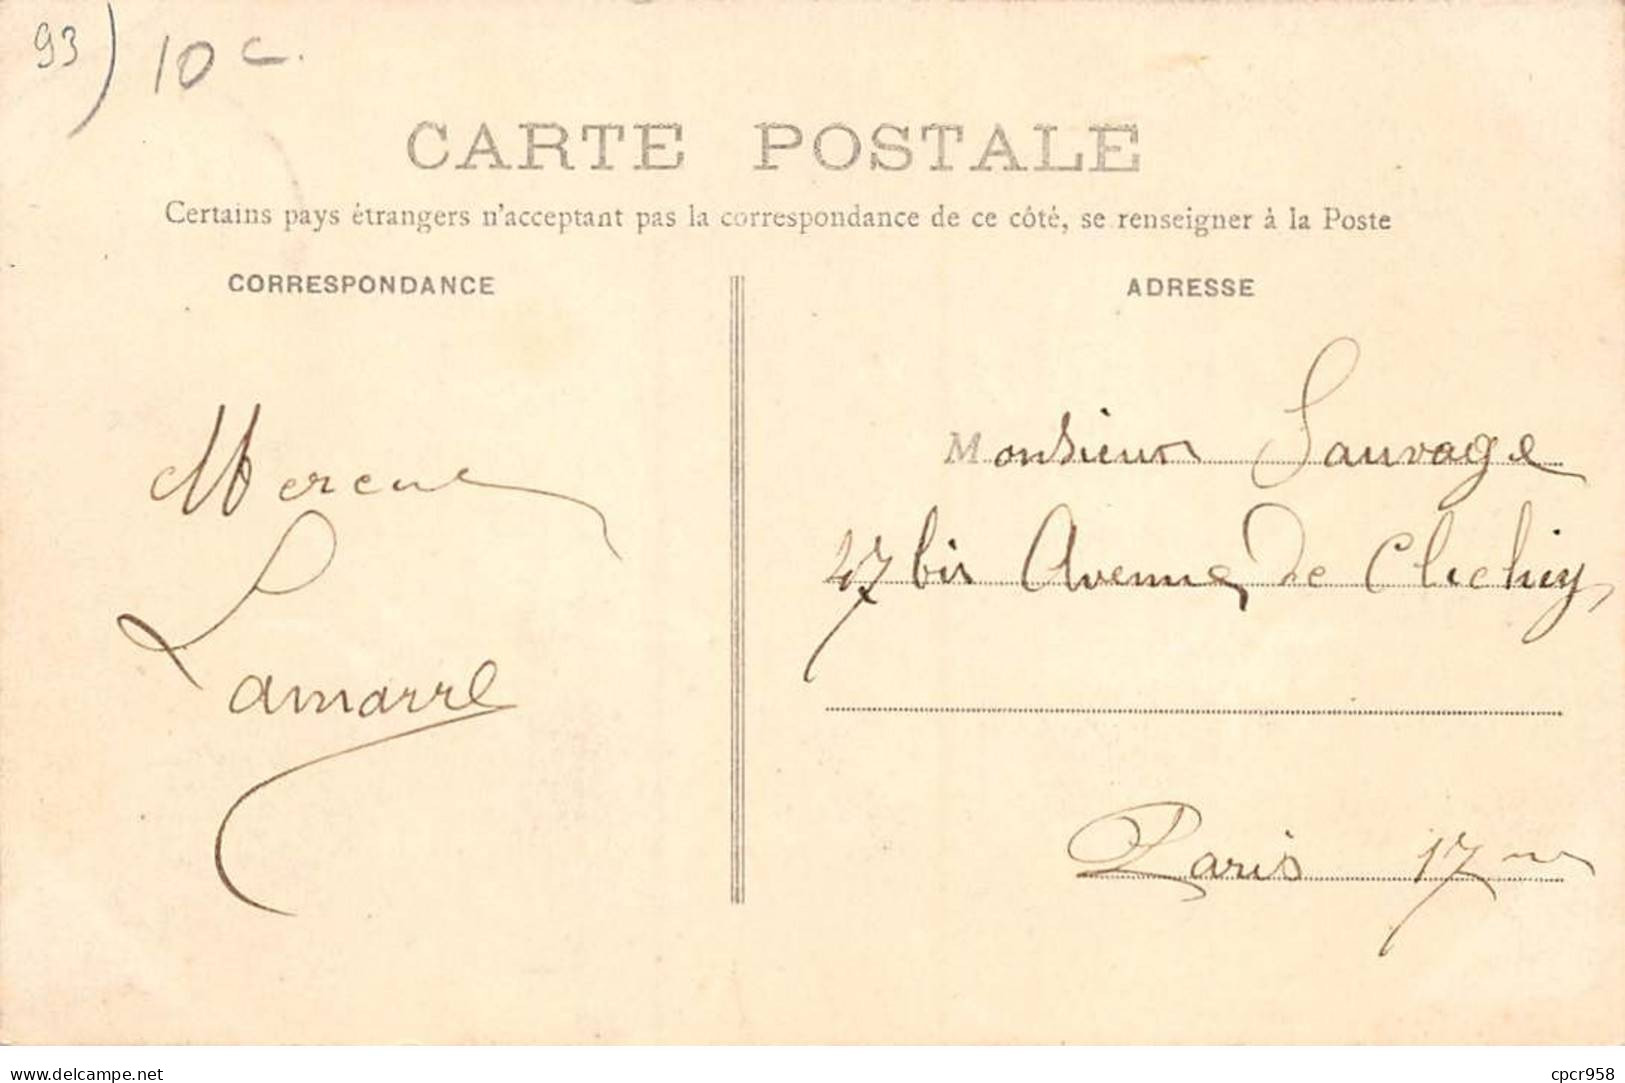 93) 10 c.
CARTE POSTALE
Certains pays étrangers n'acceptant pas la correspondance de ce côté, se renseigner à la Poste
CORRESPONDANCE
ADRESSE
Lamarre
Monsieur Sauvage
47 bis Avenue de Clichy
Paris 17me
www.delcampe.net
cpcr958